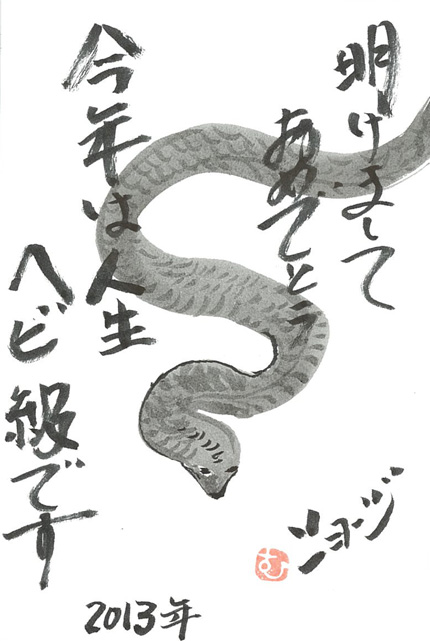 明けまして
おめでとう
今年は人生
ヘビ級です
ショージ
む
2013年